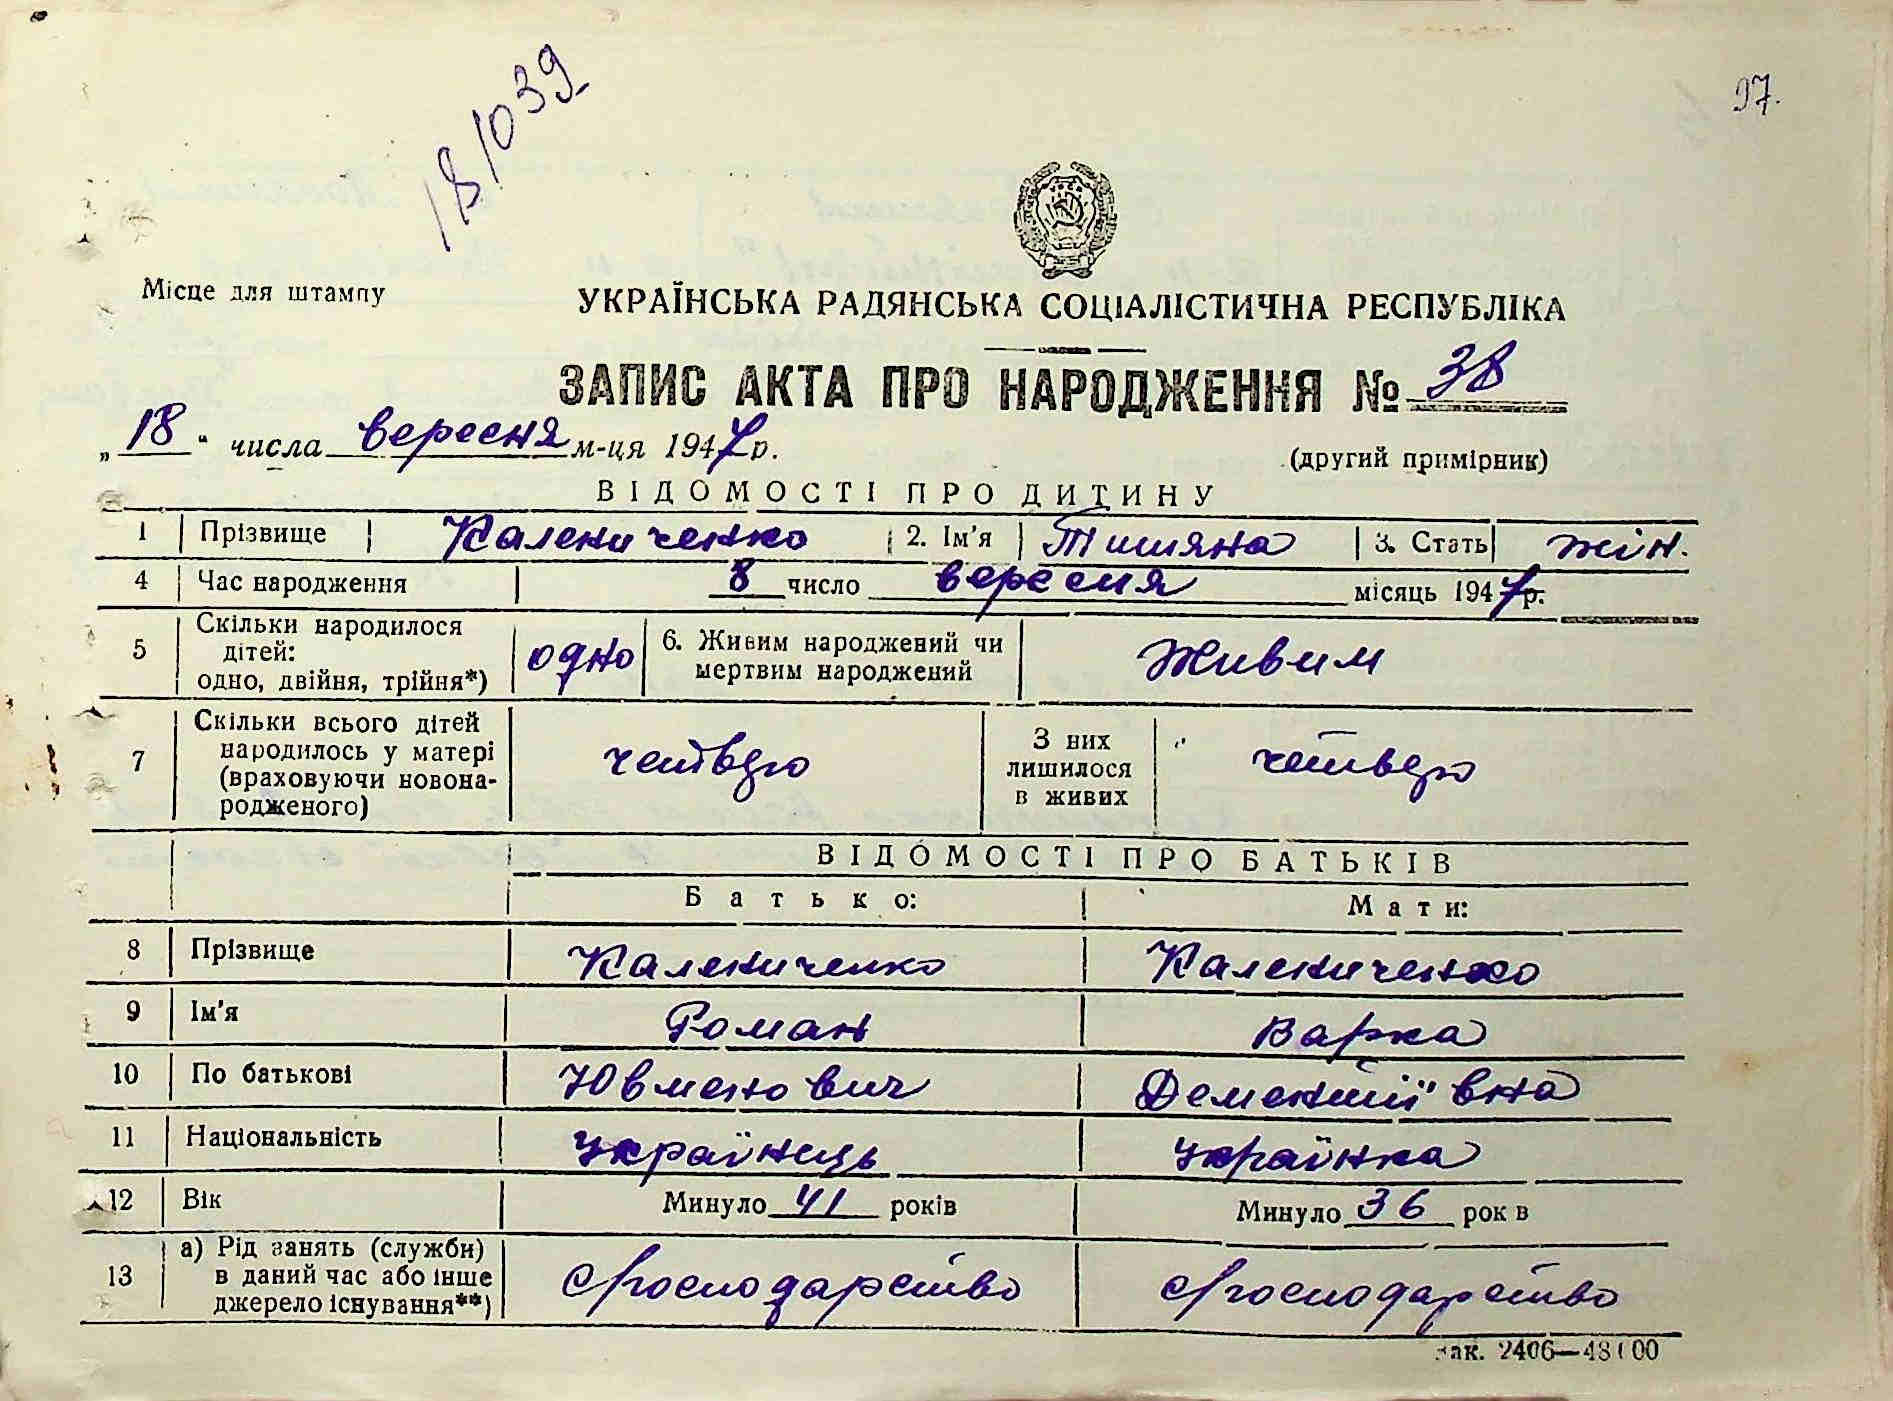 18/1039
97.
Місце для штампу
УКРАЇНСЬКА РАДЯНСЬКА СОЦІАЛІСТИЧНА РЕСПУБЛІКА
ЗАПИС АКТА ПРО НАРОДЖЕННЯ № 38
„18“ числа вересня м-ця 1947 р.
(другий примірник)
ВІДОМОСТІ ПРО ДИТИНУ
1 Прізвище Калениченко 2. Ім'я Титяна 3. Стать жін.
4 Час народження 8 число вересня місяць 1947 р.
5 Скільки народилося дітей: одно, двійня, трійня*) одно 6. Живим народжений чи мертвим народжений Живим
7 Скільки всього дітей народилось у матері (враховуючи новонародженого) четверо З них лишилося в живих четверо
ВІДОМОСТІ ПРО БАТЬКІВ
Батько: Мати:
8 Прізвище Калениченко Калениченко
9 Ім'я Роман Варка
10 По батьковіЮвменович Дементіївна
11 Національність Українець Українка
12 Вік Минуло 41 років Минуло 36 рок в
13 а) Рід занять (служби) в даний час або інше джерело існування**) господарство господарство
Зак. 2406—48000